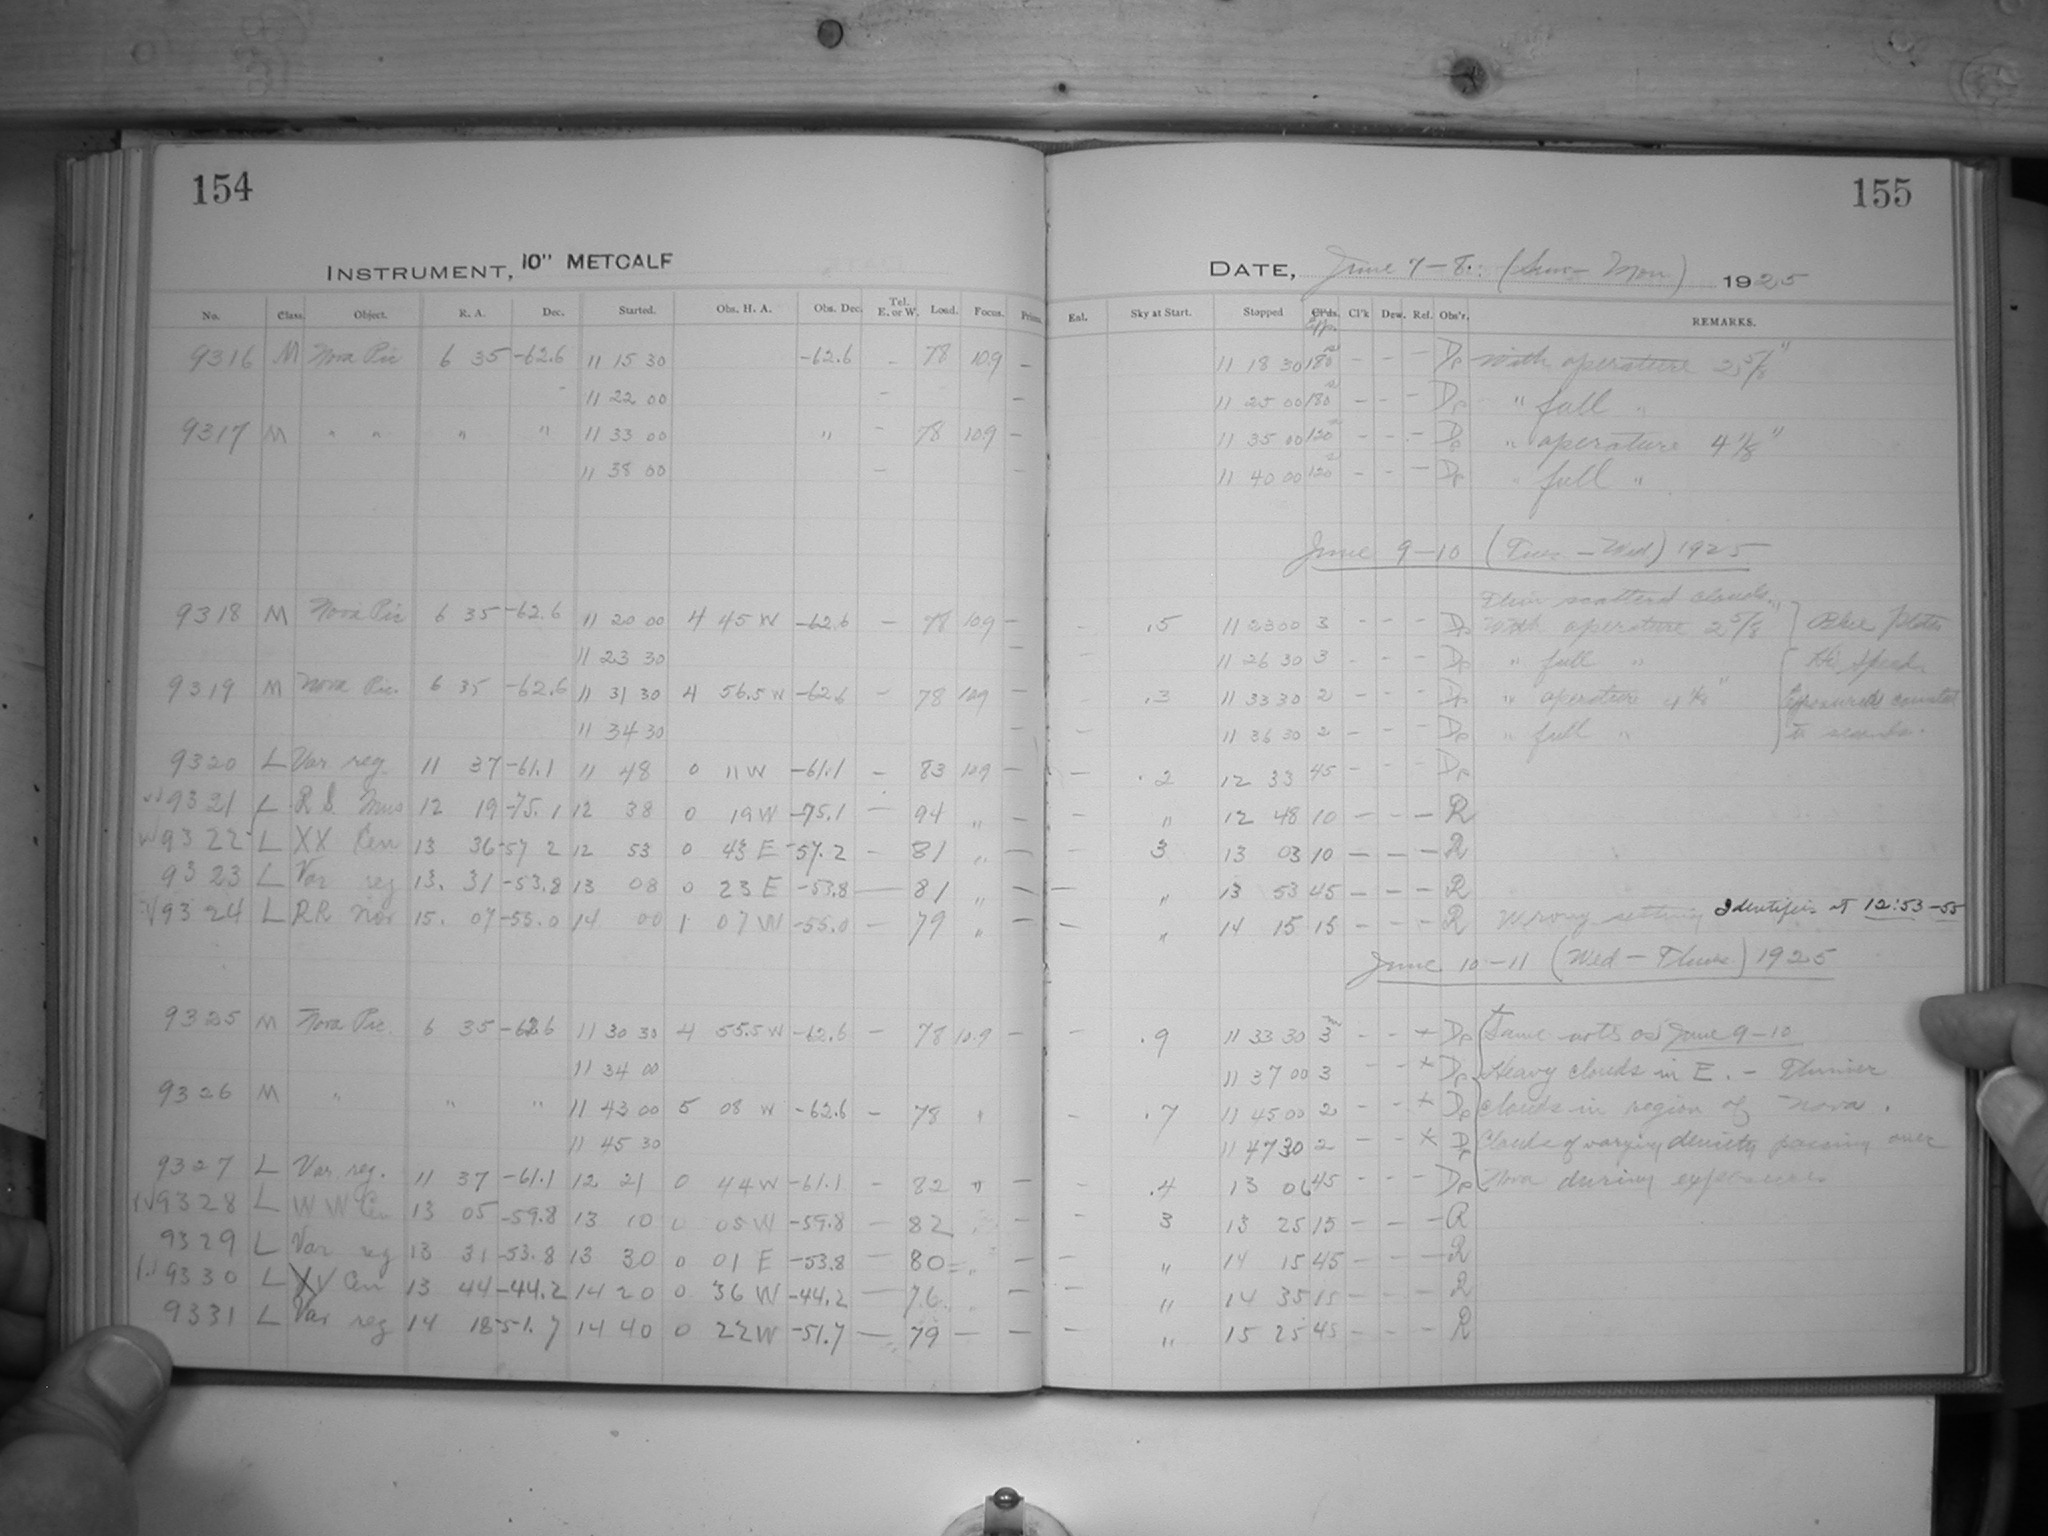 154
155
INSTRUMENT, 10" METCALF
DATE, June 7-8. (Sun- Mon) 1925
No. Class. Object. R. A. Dec. Started. Obs. H. A. Obs. Dec. Tel. E. or W. Load. Focus. Prism.
Eal. Sky at Start. Stopped Cl'ds. Exp. Cl'k Dew. Rel. Obs'r. REMARKS.
9316 M Nova Pic 6 35 -62.6 11 15 30 -62.6 - 78 10.9 - 11 18 30 180s - - - Dp With operature 2 5/8"
11 22 00 - - 11 25 00 180s - - - Dp " full "
9317 M " " " " 11 33 00 " - 78 10.9 - 11 35 00 120s - - - Dp " operature 4 1/8"
11 38 00 - - 11 40 00 120s - - - Dp " full "
June 9-10 (Tues - Wed) 1925
Thin scattered clouds.
9318 M Nova Pic 6 35 -62.6 11 20 00 4 45 W -62.6 - 78 10.9 - - .5 11 23 00 3 - - - Dp With operature 2 5/8" Blue Plates
11 23 30 - - 11 26 30 3 - - - Dp " full " Hi Speed
9319 M Nova Pic. 6 35 -62.6 11 31 30 4 56.5 W -62.6 - 78 10.9 - .3 11 33 30 2 - - - Dp " operature 4 1/8" Exposures
11 34 30 - - 11 36 30 2 - - - Dp " full " to seconds.
9320 L Var reg. 11 37 -61.1 11 48 0 11 W -61.1 - 83 10.9 - - .2 12 33 45 - - - Dp
9321 L R S Mus 12 19 -75.1 12 38 0 19 W -75.1 - 94 " - - " 12 48 10 - - - R
9322 L XX Cen 13 36 -57 2 12 53 0 43 E -57.2 - 81 " - - 3 13 03 10 - - - R
9323 L Var reg 13. 31 -53.8 13 08 0 23 E -53.8 - 81 " - - " 13 53 45 - - - R
9324 L R R Nor 15. 07 -55.0 14 00 1 07 W -55.0 - 79 " - - " 14 15 15 - - - R Wrong setting Identifies at 12:53 -55
June 10-11 (Wed - Thurs.) 1925
9325 M Nova Pic. 6 35 -62.6 11 30 30 4 55.5 W -62.6 - 78 10.9 - - .9 11 33 30 3m - - + Dp Same note as June 9-10
11 34 00 11 37 00 3 - - + Dp Heavy clouds in E. - Thinner
9326 M " " " 11 43 00 5 08 W -62.6 - 78 " - .7 11 45 00 2 - - + Dp clouds in region of Nova.
11 45 30 11 47 30 2 - - + Dp Clouds of varying density passing over
9327 L Var reg. 11 37 -61.1 12 21 0 44 W -61.1 - 82 " - - .4 13 06 45 - - - Dp Nova during exposures
9328 L W W Cen 13 05 -59.8 13 10 0 05 W -59.8 - 82 - - 3 13 25 15 - - - R
9329 L Var reg 13 31 -53.8 13 30 0 01 E -53.8 - 80 " - - " 14 15 45 - - - R
9330 L XV Cen 13 44 -44.2 14 20 0 36 W -44.2 - 76 " - - " 14 35 15 - - - R
9331 L Var reg 14 18 -51.7 14 40 0 22 W -51.7 - 79 - - - " 15 25 45 - - - R